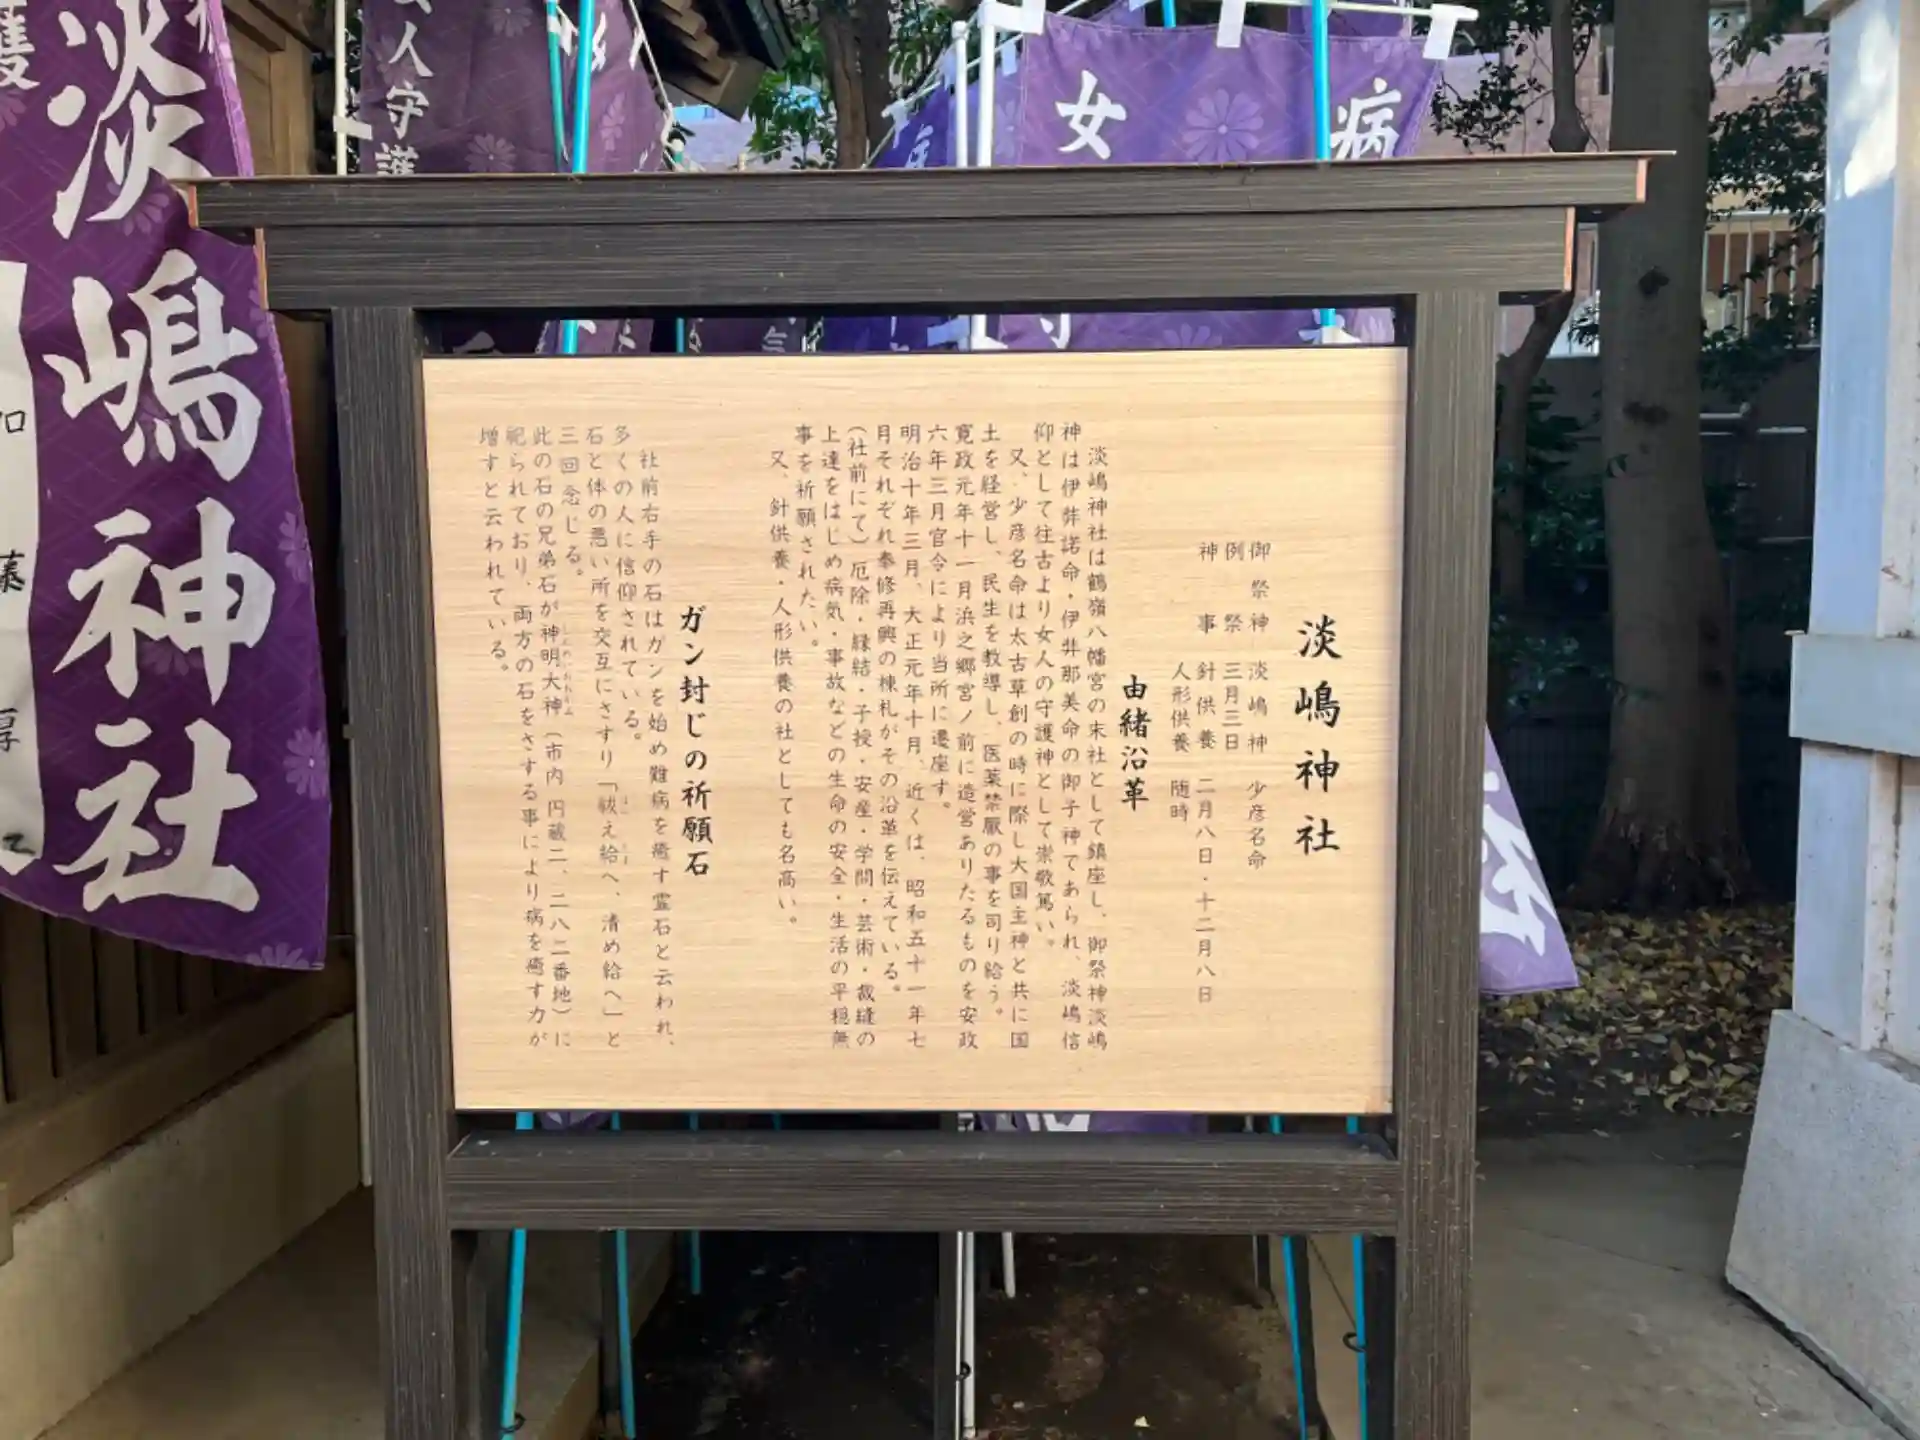 淡嶋神社
御祭神 淡嶋神 少彦名命
例祭 三月三日
神事 針供養 二月八日・十二月八日
人形供養 随時
由緒沿革
淡嶋神社は鶴嶺八幡宮の末社として鎮座し、御祭神淡嶋
神は伊弉諾命・伊弉那美命の御子神であられ、淡嶋信
仰として往古より女人の守護神として崇敬篤い。
又、少彦名命は太古草創の時に際し大国主神と共に国
土を経営し、民生を教導し、医薬禁厭の事を司り給う。
寛政元年十一月浜之郷宮ノ前に造営ありたるものを安政
六年三月官令により当所に遷座す。
明治十年三月、大正元年十月、近くは、昭和五十一年七
月それぞれ奉修再興の棟札がその沿革を伝えている。
(社前にて)厄除・縁結・子授・安産・学問・芸術・裁縫の
上達をはじめ病気・事故などの生命の安全・生活の平穏無
事を祈願されたい。
又、針供養・人形供養の社としても名高い。
ガン封じの祈願石
社前右手の石はガンを始め難病を癒す霊石と云われ、
多くの人に信仰されている。
石と体の悪い所を交互にさすり「祓え給へ、清め給へ」と
三回念じる。
此の石の兄弟石が神明大神(市内 円蔵二、二八二番地)に
祀られており、両方の石をさする事により病を癒す力が
増すと云われている。
淡嶋神社
人守護
女
病